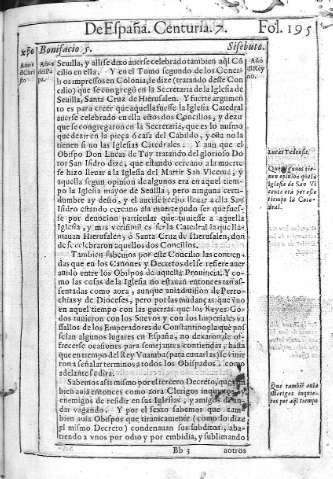 De España. Centuria. 7. Fol. 195
xpo Bonifacio 5. Sisebuto.
Sevilla, y alli se dize auerse celebrado tambien aql Cõ
cilio en ella. Y en el Tomo segundo de los Conci-
lios impressos en Colonia, se dize (tratando desse Con
cilio) que se congregò en la Secretaria de la Iglesia de
Seuilla, Santa Cruz de Hierusalen. Y fuerte argumen
to es para creer que aquella fuesse la Iglesia Catedral
auerse celebrado en ella estos dos Concilios, y dezir
que se congregaron en la Secretaria, que es lo mismo
que dezir en la pieça ò casa del Cabildo, y esta no la
tienen si no las Iglesias Catredales. Y aun que el
Obispo Don Lucas de Tuy tratando del glorioso Do
tor San Isidro dize, que estando cercano a la muerte
se hizo lleuar a la Iglesia del Martir San Vicente, y
aquella segun opinion de algunos era en aquel tiem-
po la Iglesia mayor de Seuilla; pero ninguna certi-
dumbre ay desto, y el auerse hecho lleuar a ella San
Isidro estando cercano a la muerte pudo ser que fues-
se por deuocion particular que tuuiesse a aquella
Iglesia, y mas verisimil es ser la Catedral la que lla-
mauan Hierusalen, ò Santa Cruz de Hierusalen, don
de se celebraron aquellos dos Concilios.
Tambien sabemos por este Concilio las contien-
das que en los Canones y Decretos del se refiere auer
auido entre los Obispos de aquella Prouincia. Y co-
mo las cosas de la Iglesia no estauan entonces tan as-
sentadas como aora, aunque auia diuision de Perro-
chias y de Dioceses, pero por las mudanças que vuo
en aquel tiempo con las guerras que los Reyes Go-
dos tuuieron con los Sueuos y con los Imperiales va
sallos de los Emperadores de Constantinopla que pos
seian algunos lugares en España, no dexarian de of-
frecerse ocasiones para semejantes contiendas, hasta
que en tiempo del Rey Vuamba (para euitarlas) se vinie
ron a señalar terminos a todos los Obispados, como
adelante se dira.
Sabemos assi mismo por el tercero Decreto, que tã
bien auia entonces como aora Clerigos inquietos y
enemigos de residir en sus Iglesias, y amigos de an-
dar vagando. Y por el texto sabemos que tam
bien auia Obispos que tiranicamente (como lo dize
el mismo Decreto) condenauan sus subditos, aba-
tiendo a vnos por odio y por embidia, y sublimando
Bb 3 aotros
Lucas Tudense.
Que algunos tie-
nen opinion que la
Iglesia de San Vi
cente era por aquel
tiempo la Cate-
dral.
Que tambiẽ auia
clerigos inquie-
tos por aql tiempo